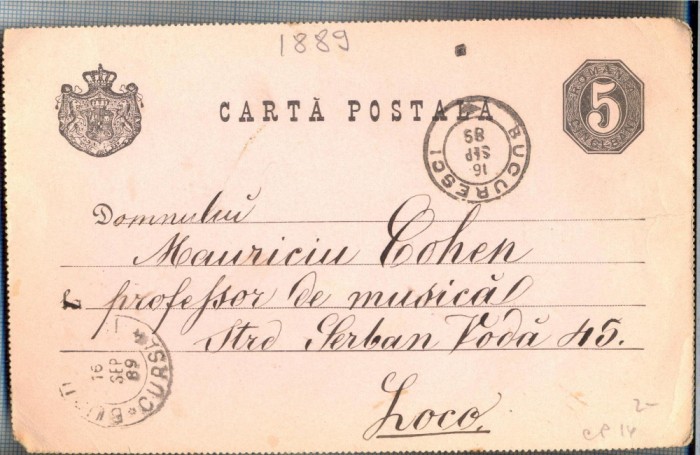 1889
CARTĂ POSTALA
ROMANIA
5
CINCI BANI
BUCURESCI
16
SEP
89
Domnului
Mauriciu Cohen
professor de musică
Strd Serban Vodă 45.
Loco.
16
SEP
89
CURSA
2-
CP 14